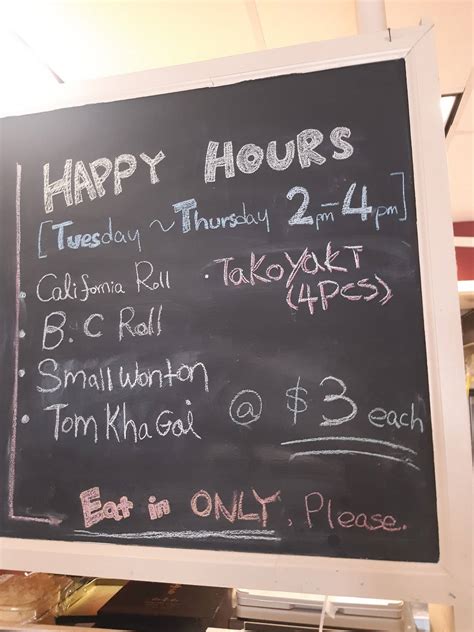 HAPPY HOURS
[Tuesday ~ Thursday 2pm-4pm]
• California Roll
• TAKOYAKI
(4PCS)
• B.C Roll
• Small Wonton
• Tom Kha Gai @ $3 each
Eat in ONLY, Please.